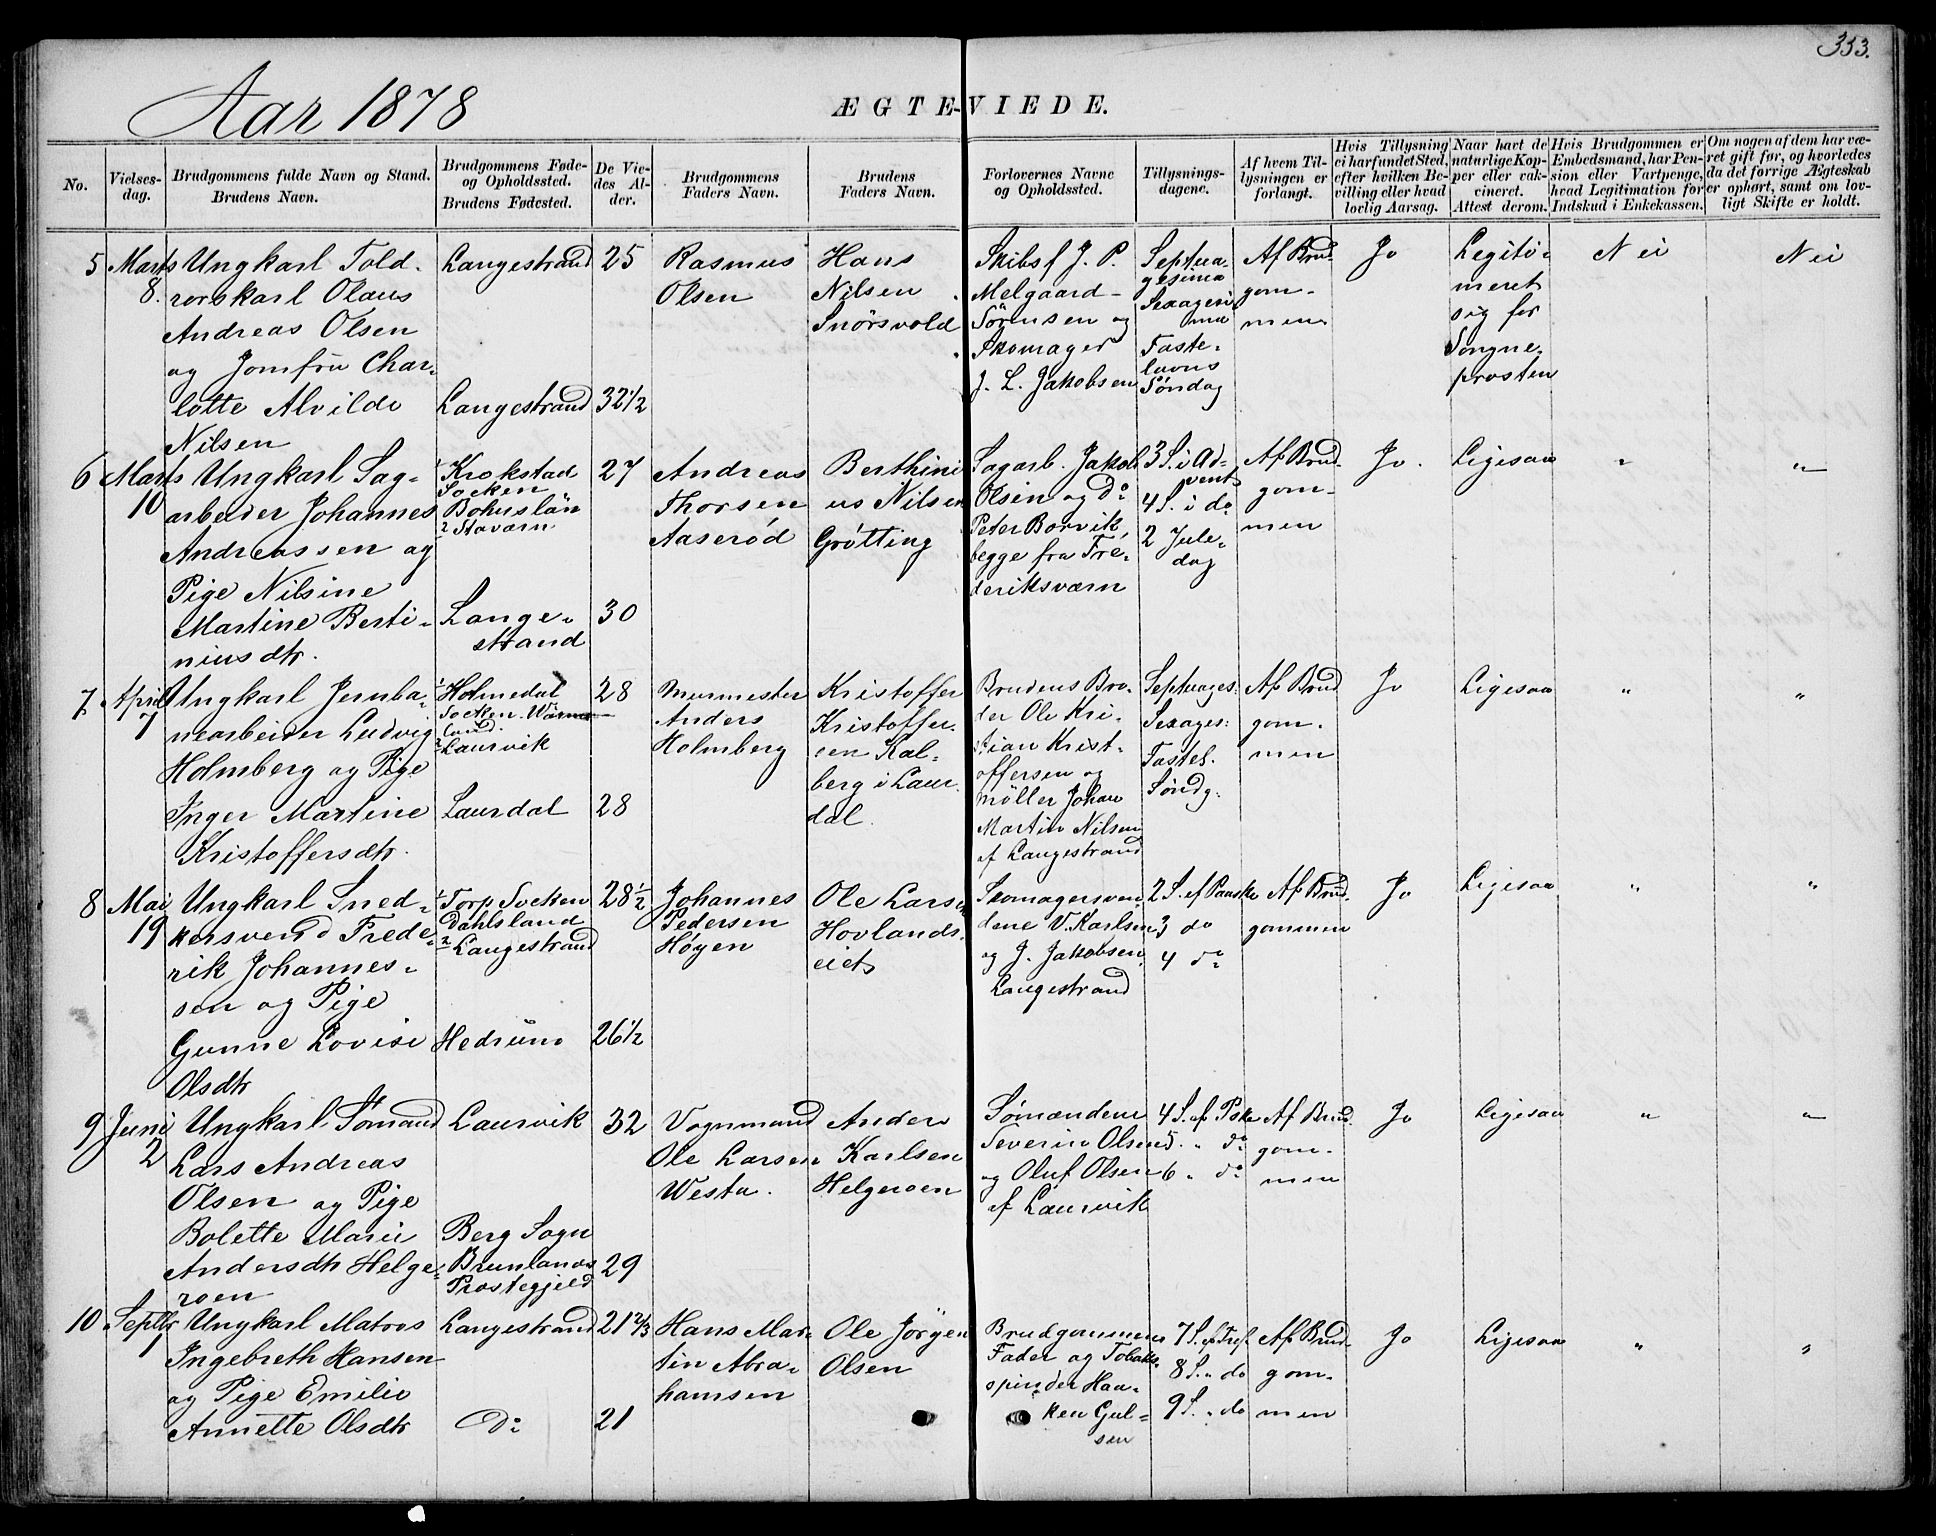 353.
Aar 1878
ÆGTE-VIEDE.
No.
Vielses-
dag.
Brudgommens fulde Navn og Stand.
Brudens Navn.
Brudgommens Føde-
og Opholdssted.
Brudens Fødested.
De Vie-
des Al-
der.
Brudgommens
Faders Navn.
Brudens
Faders Navn.
Forlovernes Navne
og Opholdssted.
Tillysnings-
dagene.
Af hvem Til-
lysningen er
forlangt.
Hvis Tillysning
ei har fundet Sted,
efter hvilken Be-
villing eller hvad
lovlig Aarsag.
Naar havt de
naturlige Kop-
per eller vak-
cineret.
Attest derom.
Hvis Brudgommen er
Embedsmand, har Pen-
sion eller Vartpenge,
hvad Legitimation for
Indskud i Enkekassen.
Om nogen af dem har væ-
ret gift før, og hvorledes
da det forrige Ægteskab
er ophørt, samt om lov-
ligt Skifte er holdt.
5
Marts
8.
Ungkarl Told-
rorskarl Olaus
Andreas Olsen
og Jomfru Char-
lotte Alvilde
Nilsen
Langestrand
Langestrand
25
32 1/2
Rasmus
Olsen
Hans
Nilsen
Snörsvold
Skibsf J. P.
Melgaard-
Sörensen og
Skomager
J. L. Jakobsen
Septua
gesima
Sexagesi
ma
Faste-
lavns
Søndag
Af Brud
gom-
men
Jo
Legiti-
meret
sig for
Sogne-
prosten
Nei
Nei
6
Marts
10
Ungkarl Sag-
arbeider Johannes
Andreassen og
Pige Nilsine
Martine Berti-
niusdtr.
1 Krokstad
Socken
Bohuslän
2 Staværn
Lange-
strand
27
30
Andreas
Thorsen
Aaserød
Berthini
us Nilsen
Grøtting
Sagarb. Jakob
Olsen og do
Peter Borvik,
begge fra Fre-
deriksværn
3 S. i Ad-
vent
4 S. i do
2 Jule-
dag
Af Brud-
gom-
men
Jo.
Ligesaa
"
"
7
April
7
Ungkarl Jernba-
nearbeider Ludvig
Holmberg og Pige
Inger Martine
Kristoffersdtr.
1 Holmedal
Socken Wärm
land.
2 Laurvik
Laurdal
28
28
Murmester
Anders
Holmberg
Kristoffer
Kristoffer-
sen Kal-
berg i Laur
dal.
Brudens Bro-
der Ole Kri-
stian Krist-
offersen og
Møller Johan
Martin Nilsen
af Langestrand
Septuages:
Sexages:
Fastel.
Søndg:
Af Brud
gom-
men
Jo
Ligesaa
"
"
8
Mai
19
Ungkarl Sned-
kersvend Frede-
rik Johannes-
sen og Pige
Gunne Lovise
Olsdtr
1 Torp Socken
Dahlsland
2 Langestrand
Hedrum
28 1/2
26 1/2
Johannes
Pedersen
Høyen
Ole Larsen
Hovlands-
eiet
Skomagersven-
dene V. Karlsen
og J. Jakobsen,
Langestrand
2 S. ef Paaske
3 do
4 do
Af Brud-
gommen
Jo
Ligesaa
"
"
9
Juni
2
Ungkarl Sømand
Lars Andreas
Olsen og Pige
Bolette Marie
Andersdtr Helge-
roen
Laurvik
Berg Sogn
Brunlanæs
Præstegjeld
32
29
Vognmand
Ole Larsen
Westa.
Anders
Karlsen
Helgeroen
Sømændene
Severin Olsen
og Oluf Olsen
af Laurvik
4 S. ef Pske
5. " do
6 " do
Af Brud
gom-
men
Jo
Ligesaa
"
"
10
Septbr
1
Ungkarl Matros
Ingebreth Hansen
og Pige Emilie
Annette Olsdtr
Langestrand
Do
21 2/3
21
Hans Mar-
tin Abra-
hamsen
Ole Jörgen
Olsen
Brudgommens
Fader og Tobaks-
spinder Haa-
ken Gul-
sen
7 S. ef Tref
8 S. " do
9 S. " do
Af Brud-
gom-
men
Jo
Ligesaa
"
"